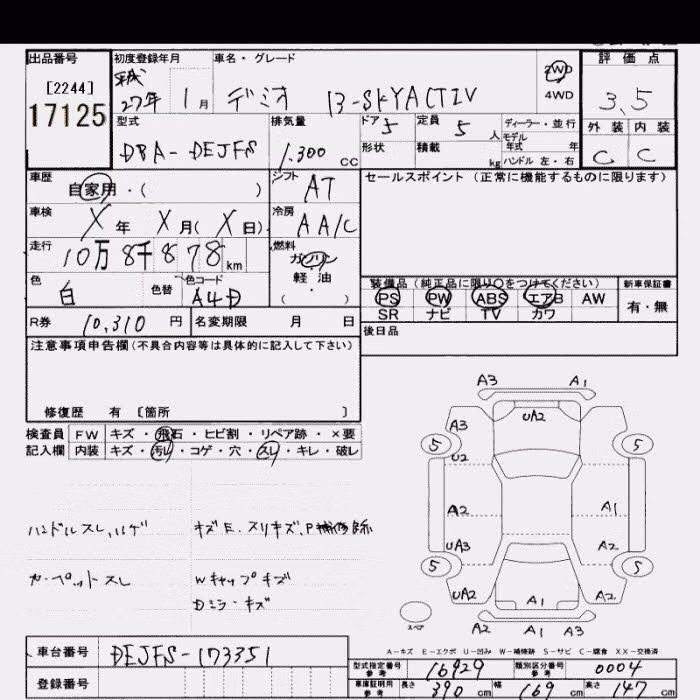 出品番号 初度登録年月 車名・グレード 評価点
[2244] 平成 2WD
17125 27年 1月 デミオ 13-SKYACTIV 4WD 3.5
型式 排気量 ドア 5 定員 5人 ディーラー・並行 外装 内装
モデル年式 年
DBA-DEJFS 1.300cc 形状 積載 kg ハンドル 左・右 C C
車歴 自家用・( ) シフト AT セールスポイント(正常に機能するものに限ります)
車検 X年 X月(X日) 冷房 AA/C
走行 10万8千878km 燃料 ガソリン
軽油
( )
色 白 色替 色コード A4D 装備品(純正品に限り○をつけてください) 新車保証書
PS PW ABS エアB AW 有・無
SR ナビ TV カワ
R券 10,310円 名変期限 月 日 後日品
注意事項申告欄(不具合内容等は具体的に記入して下さい)
修復歴 有 [箇所 ]
検査員 FW キズ・飛石・ヒビ割・リペア跡・×要
記入欄 内装 キズ・汚れ・コゲ・穴・スレ・キレ・破レ
A3 A1
A3 UA2
5 5
U2
ハンドルスレ,ハゲ キズE.スリキズ,P補修跡 A2 A1
UA3 A2
カーペットスレ Wキャップキズ 5 5
Dミラーキズ UA2 A1 A2
スペア A2 A1 A3
A-キズ E-エクボ U-凹み W-補修跡 S-サビ C-腐食 XX-交換済
車台番号 DEJFS-173351
型式指定番号 参考 16929 類別区分番号 参考 0004
登録番号 車庫証明用 参考 長さ 390cm 幅 169cm 高さ 147cm